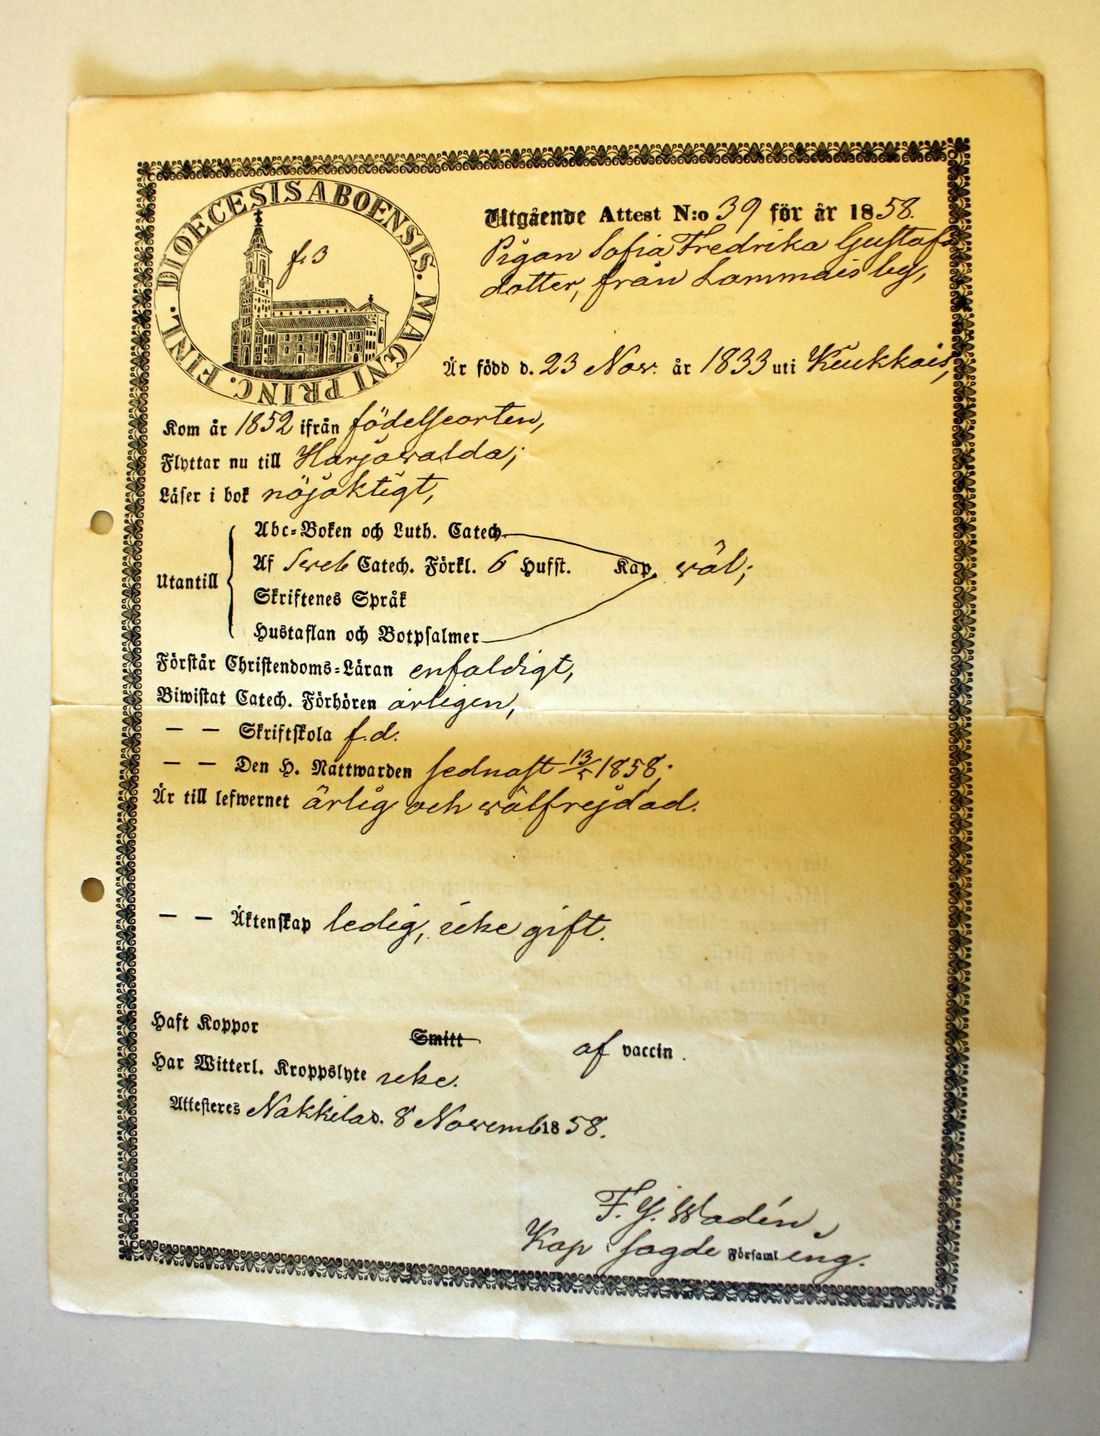 DIOECESIS ABOENSIS. MAGNI PRINC. FINL.
f. 3
Utgående Attest N:o 39 för år 1858.
Pigan Sofia Fredrika Gustafs
dotter, från Lammais by,
Är född d. 23 Nov. år 1833 uti Keukkais,
Kom år 1852 ifrån födelseorten,
Flyttar nu till Harjawalda;
Läser i bok nöjaktigt,
Utantill
Abc-Boken och Luth. Catech.
Af Sveb Catech. Förkl. 6 Hufst. Kap. wäl;
Skriftenes Språk
Hustaflan och Botpsalmer
Förstår Christendoms-Läran enfaldigt,
Biwistat Catech. Förhören årligen,
— — Skriftskola f.d.
— — Den H. Nattwarden sednast 13/5 1858;
Är till lefwernet ärlig och wälfrejdad.
— — Äktenskap ledig, icke gift.
Haft Koppor Smitt af vaccin.
Har Witterl. Kroppslyte icke.
Attesteres Nakkila d. 8 Novemb 1858.
F. J. Wadén,
Kap. i sagde Församling.